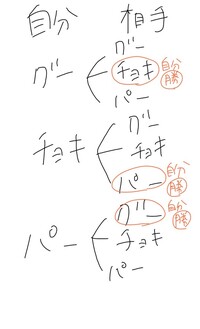 自分 相手
グー
グー チョキ 自分 勝
パー
グー
チョキ チョキ
パー 自分 勝
グー 自分 勝
パー チョキ
パー